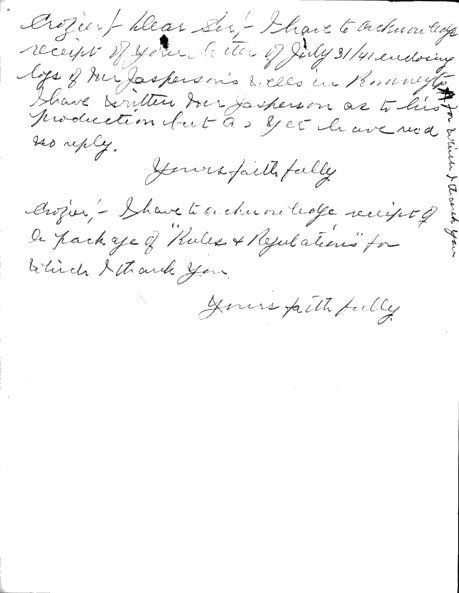 Crozier,/- Dear Sir,- I have to acknowledge
receipt of your letter of July 31/41 enclosing
logs of Mr Jasperson's wells in Romney to
I have written Mr Jasperson as to his
production but as yet have recd
no reply.
Yours faithfully
Crozier,- I have to acknowledge receipt of
a package of "Rules & Regulations" for
which I thank you.
Yours faithfully
for which I thank you